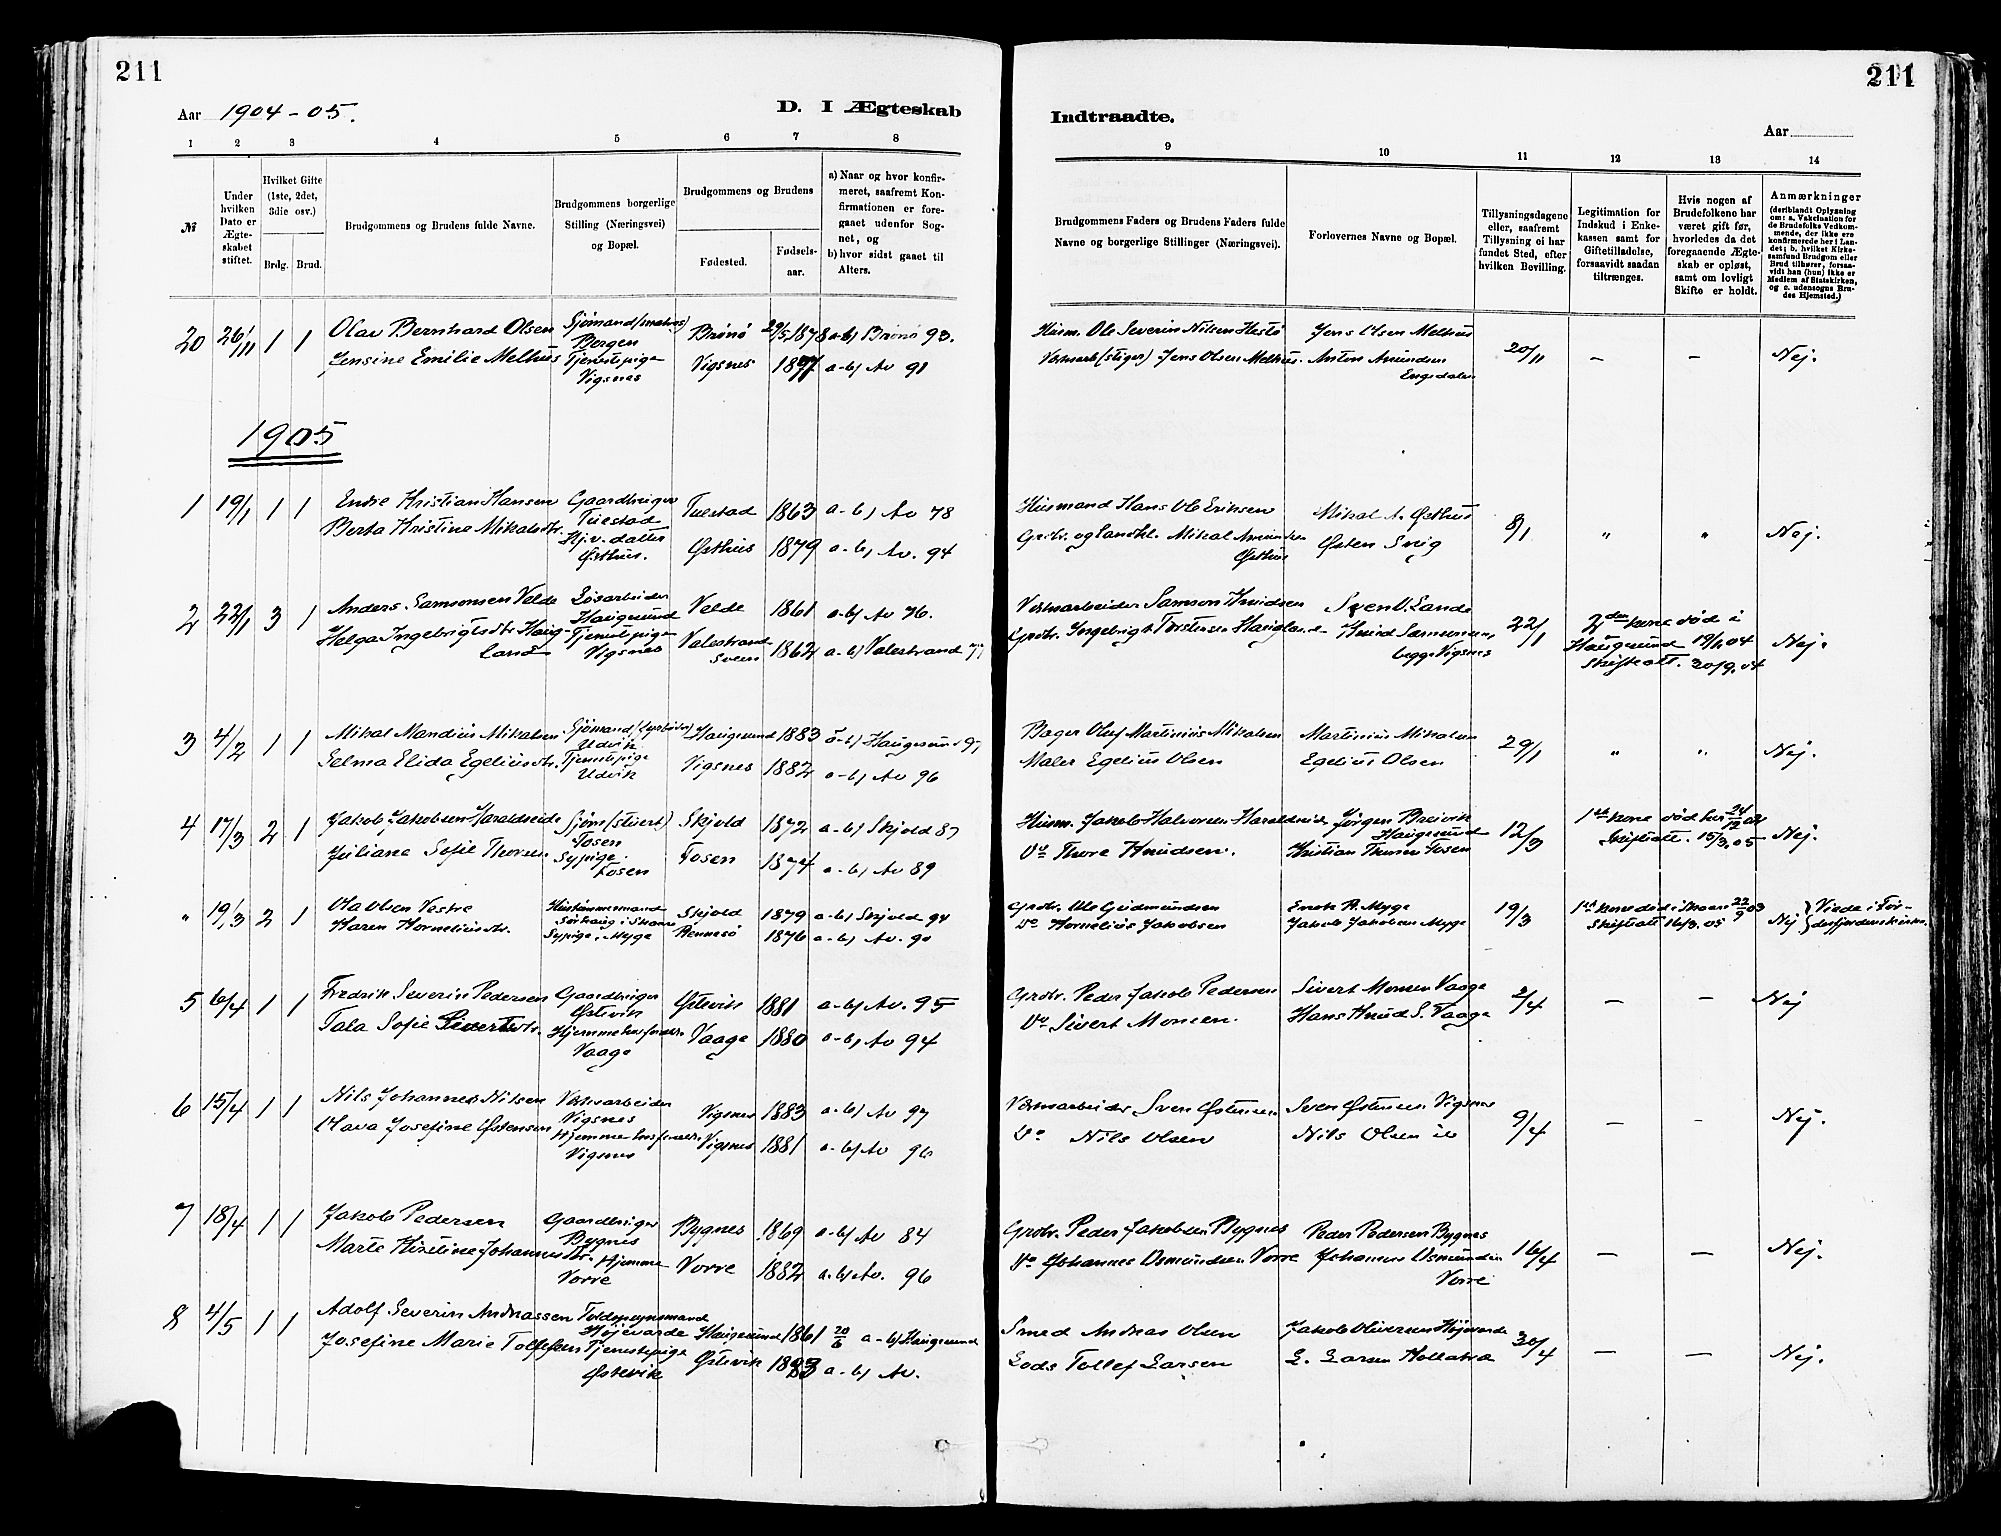 211
211
Aar 1904-05.
D. I Ægteskab
Indtraadte.
Aar
1 2 3 4 5 6 7 8 9 10 11 12 13 14
№
Under hvilken Dato er Ægteskabet stiftet.
Hvilket Gifte (1ste, 2det, 3die osv.)
Brdg. Brud.
Brudgommens og Brudens fulde Navne.
Brudgommens borgerlige Stilling (Næringsvei) og Bopæl.
Brudgommens og Brudens
Fødested.
Fødselsaar.
a) Naar og hvor konfirmeret, saafremt Konfirmationen er foregaaet udenfor Sognet, og
b) hvor sidst gaaet til Alters.
Brudgommens Faders og Brudens Faders fulde Navne og borgerlige Stillinger (Næringsvei).
Forlovernes Navne og Bopæl.
Tillysningsdagene eller, saafremt Tillysning ei har fundet Sted, efter hvilken Bevilling.
Legitimation for Indskud i Enkekassen samt for Giftetilladelse, forsaavidt saadan tiltrænges.
Hvis nogen af Brudefolkene har været gift før, hvorledes da det foregaaende Ægteskab er opløst, samt om lovligt Skifte er holdt.
Anmærkninger (deriblandt Oplysning om: a. Vakcination for de Brudefolks Vedkommende, der ikke ere konfirmerede her i Landet; b. hvilket Kirkesamfund Brudgom eller Brud tilhører, forsaavidt han (hun) ikke er Medlem af Statskirken, og c. udensogns Brudes Hjemsted.)
20 26/11 1 1 Olav Bernhard Olsen Sjömand (matros) Bergen Brönö 29/5 1878 a-b) Brönö 93. Husm. Ole Severin Nilsen Hestö Jens Olsen Melhus 20/11 — — Nej.
Jensine Emilie Melhus Tjenestpige Vigsnes Vigsnes 1877 a-b) Av 91 Verksarb (stiger) Jens Olsen Melhus. Anton Amundsen Engedalen
1905
1 19/1 1 1 Endre Kristian Hansen Gaardbruger Tuestad Tuestad 1863 a-b) Av 78 Husmand Hans Ole Eriksen Mikal A. Østhus 8/1 " " Nej.
Berta Kristine Mikalsdtr. Hj.v. datter Østhus. Østhus 1879 a-b) Av. 94 Grdbr. og Landhl. Mikal Amundsen Østhus Østen Snig
2 22/1 3 1 Anders Samsonsen Velde Løsarbeider Haugesund Velde 1861 a-b) Av 76. Verksarbeider Samson Knudsen Sven O. Lande 22/1 2den kone död i Haugesund 19/1.04 Skifteatt. 30/9.04 Nej.
Helga Ingebrigtsdtr Haugland Tjenestpige Vigsnes Valestrand Sveen 1862 a-b) Valestrand 77 Grdbr. Ingebrigt Torstensen Haugland Knud Samsonsen, begge Vigsnes
3 4/2 1 1 Mikal Mandius Mikalsen Sjömand (fyrböter) Udvik Haugesund 1883 a-b) Haugesund 97 Bager Oluf Martinius Mikalsen Martinius Mikalsen 29/1 " " Nej.
Selma Elida Egeliusdtr. Tjenestpige Udvik Vigsnes 1882 a-b) Av 96 Maler Egelius Olsen Egelius Olsen
4 17/3 2 1 Jakob Jakobsen Haraldseide Sjöm. (stuert) Tosen Skjold 1872 a-b) Skjold 87 Husm. Jakob Halvorsen Haraldseid Jörgen Breivik Haugesund 12/3 1ste kone död her 24/12 04 Skifteatt. 15/3.05 Nej.
Juliane Sofie Thorsen Sypige Tosen Tosen 1874 a-b) Av 89 Do Thore Knudsen. Kristian Thorsen Tosen
" 19/3 2 1 Ola Olsen Vestre Hustömmermand Sörhaug i Skaare Skjold 1879 a-b) Skjold 94 Grdbr. Ole Gudmundsen Enok A. Myge 19/3 1ste kone död i Skaare 22/9 03 Skifteatt 16/3.05 Nej } Viede i Fördesfjordens kirke.
Karen Korneliusdtr. Sypige, Myge Rennesö 1876 a-b) Av. 90 Do Kornelius Jakobsen Jakob Jakobsen Myge
5 6/4 1 1 Fredrik Severin Pedersen Gaardbruger Østevik Østevik 1881 a-b) Av. 95 Grdbr. Peder Jakob Pedersen Sivert Monsen Vaage 2/4 — — Nej
Tala Sofie Sivertsdtr. Hjemme hos foreldr. Vaage Vaage 1880 a-b) Av 94 Do Sivert Monsen. Hans Knud S. Vaage
6 15/4 1 1 Nils Johannes Nilsen Verksarbeider Vigsnes Vigsnes 1883 a-b) Av 97 Verksarbeider Sven Østensen Sven Østensen Vigsnes 9/4 — — Nej.
Olava Josefine Østensen Hjemme hos foreldr. Vigsnes Vigsnes 1881 a-b) Av 96 Do Nils Olsen Nils Olsen ib
7 18/4 1 1 Jakob Pedersen Gaardbruger Bygnes Bygnes 1869 a-b) Av 84 Grdbr. Peder Jakobsen Bygnes Peder Pedersen Bygnes 16/4 — — Nej.
Marte Kristine Johannesdtr. Hjemme Vorre Vorre 1882 a-b) Av. 96 Do Johannes Osmundsen Vorre Johannes Osmundsen Vorre
8 4/5 1 1 Adolf Severin Andreassen Toldopsynsmand Höjevarde Haugesund 1861 20/6 a-b) Haugesund Smed Andreas Olsen Jakob Oliversen Höjevarde 30/4 — — Nej.
Josefine Marie Tollefsen Tjenestepige Østevik Østevik 1883 a-b) Av. Lods Tollef Larsen L. Larsen Hollatra